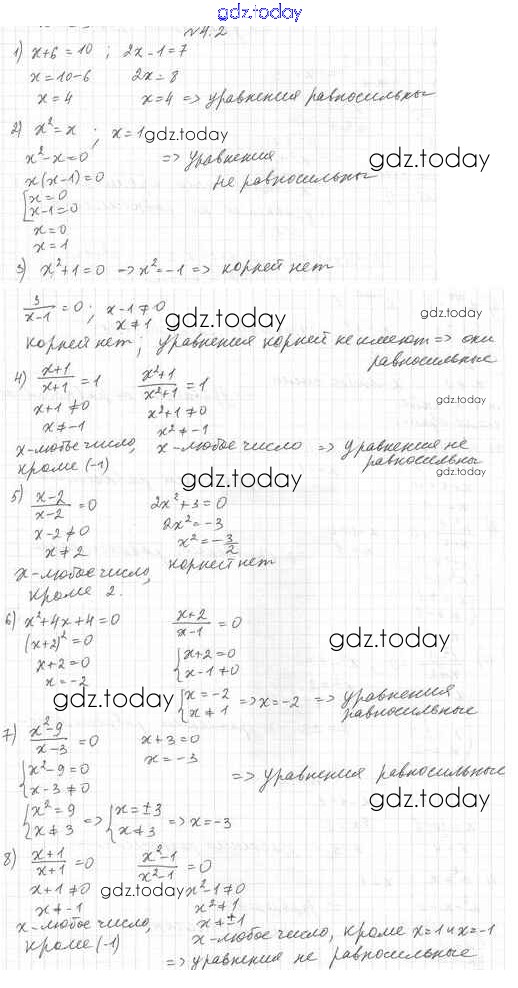 gdz.today
№4.2
1) x+6=10 ; 2x-1=7
x=10-6 2x=8
x=4 x=4 => уравнения равносильны
2) x²=x ; x=1 gdz.today
x²-x=0 => уравнения gdz.today
x(x-1)=0 не равносильны
[x=0
x-1=0
x=0
x=1
3) x²+1=0 => x²=-1 => корней нет
3/(x-1)=0; x-1≠0 gdz.today
x≠1 gdz.today
корней нет; уравнения корней не имеют => они
равносильные
4) (x+1)/(x+1)=1 (x²+1)/(x²+1)=1
x+1≠0 x²+1≠0 gdz.today
x≠-1 x²≠-1
x-любое число, x-любое число => уравнения не
кроме (-1) равносильны
gdz.today gdz.today
5) (x-2)/(x-2)=0 2x²+3=0
x-2≠0 2x²=-3
x≠2 x²=-3/2
x-любое число, корней нет
кроме 2.
6) x²+4x+4=0 (x+2)/(x-1)=0
(x+2)²=0 {x+2=0 gdz.today
x+2=0 x-1≠0
x=-2 {x=-2 => x=-2 => уравнения
gdz.today x≠1 равносильные
7) (x²-9)/(x-3)=0 x+3=0
{x²-9=0 x=-3
x-3≠0 => уравнения равносильные
{x²=9 => {x=±3 => x=-3 gdz.today
x≠3 x≠3
8) (x+1)/(x+1)=0 (x²-1)/(x²-1)=0
x+1≠0 gdz.today x²-1≠0
x≠-1 x²≠1
x-любое число, x≠±1
кроме (-1) x-любое число, кроме x=1 и x=-1
=> уравнения не равносильные